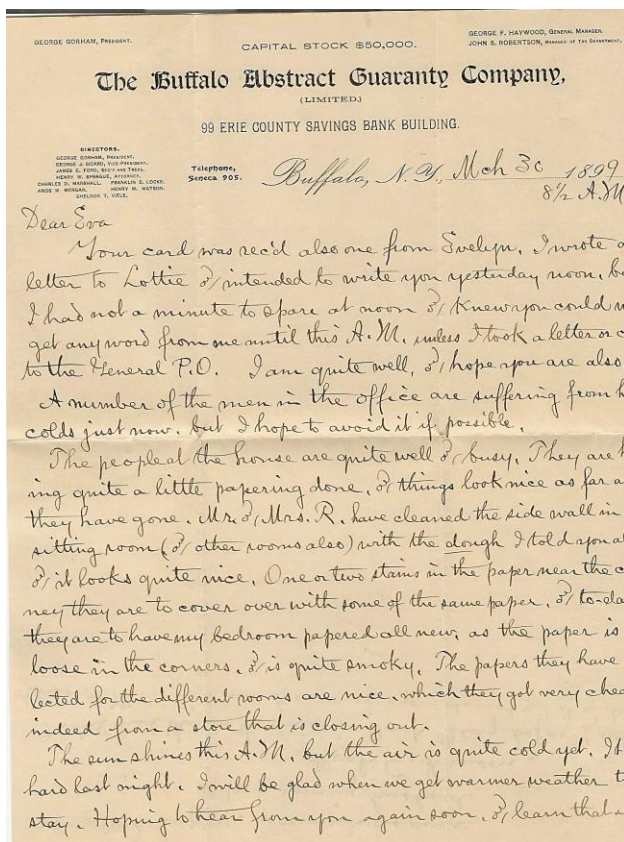 GEORGE GORHAM, PRESIDENT.
CAPITAL STOCK $50,000.
GEORGE F. HAYWOOD, GENERAL MANAGER.
JOHN S. ROBERTSON, MANAGER OF TAX DEPARTMENT.
The Buffalo Abstract Guaranty Company,
(LIMITED.)
99 ERIE COUNTY SAVINGS BANK BUILDING.
DIRECTORS.
GEORGE GORHAM, PRESIDENT.
GEORGE J. SICARD, VICE-PRESIDENT.
JAMES E. FORD, SECY AND TREAS.
HENRY W. SPRAGUE, ATTORNEY.
CHARLES D. MARSHALL. FRANKLIN D. LOCKE.
ANDS W. MORGAN. HENRY M. WATSON.
SHELDON T. VIELE.
Telephone,
Seneca 905.
Buffalo, N.Y., Mch 30 1899
8 1/2 A.M
Dear Eva
Your card was rec'd also one from Evelyn. I wrote a
letter to Lottie & intended to write you yesterday noon, b
I had not a minute to spare at noon & knew you could n
get any word from me until this A.M. unless I took a letter or c
to the General P.O. I am quite well, & hope you are also
A number of the men in the office are suffering from h
colds just now. but I hope to avoid it if possible.
The people at the house are quite well & busy. They are h
ing quite a little papering done, & things look nice as far a
they have gone. Mr. & Mrs. R. have cleaned the side wall in
sitting room (& other rooms also) with the dough I told you a
& it looks quite nice. One or two stains in the paper near the c
ney they are to cover over with some of the same paper, & to-da
they are to have my bedroom papered all new, as the paper is
loose in the corners, & is quite smoky. The papers they have
lected for the different rooms are nice, which they got very chea
indeed from a store that is closing out.
The sun shines this A.M. but the air is quite cold yet. It
hard last night. I will be glad when we get warmer weather t
stay. Hoping to hear from you again soon, & learn that